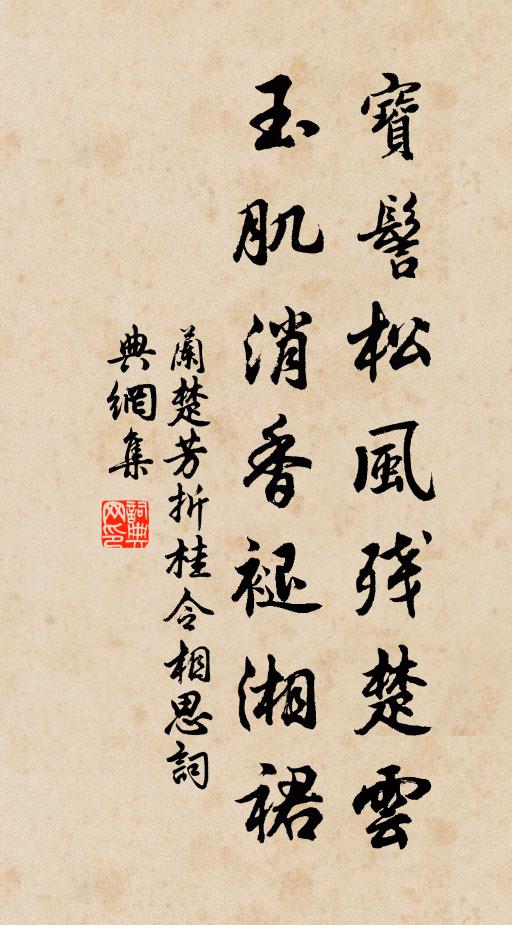 寶髻松風殘楚雲
玉肌消香褪湘裙
蘭楚芳折桂令相思詞
典網集
詞典网印